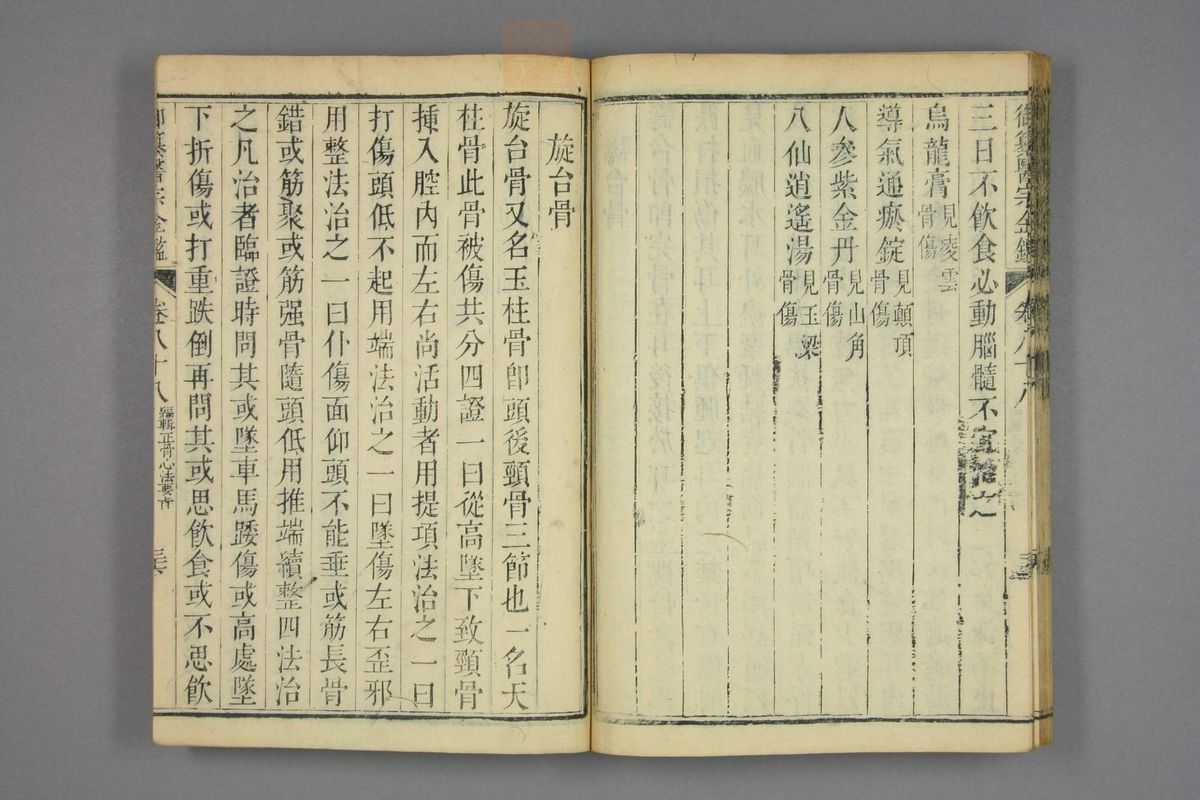 三日不飲食必動腦髓不宜治之
烏龍膏見凌雲骨傷
導氣通瘀錠見顛頂骨傷
人參紫金丹見山角骨傷
八仙逍遙湯見玉梁骨傷
旋台骨
旋台骨又名玉柱骨卽頭後頸骨三節也一名天
柱骨此骨被傷共分四證一曰從高墜下致頸骨
挿入腔內而左右尚活動者用提項法治之一曰
打傷頭低不起用端法治之一曰墜傷左右歪邪
用整法治之一曰仆傷面仰頭不能垂或筋長骨
錯或筋聚或筋强骨隨頭低用推端續整四法治
之凡治者臨證時問其或墜車馬踒傷或高處墜
下折傷或打重跌倒再問其或思飲食或不思飲
御纂醫宗金鑑
卷八十八
編輯正骨心法要旨